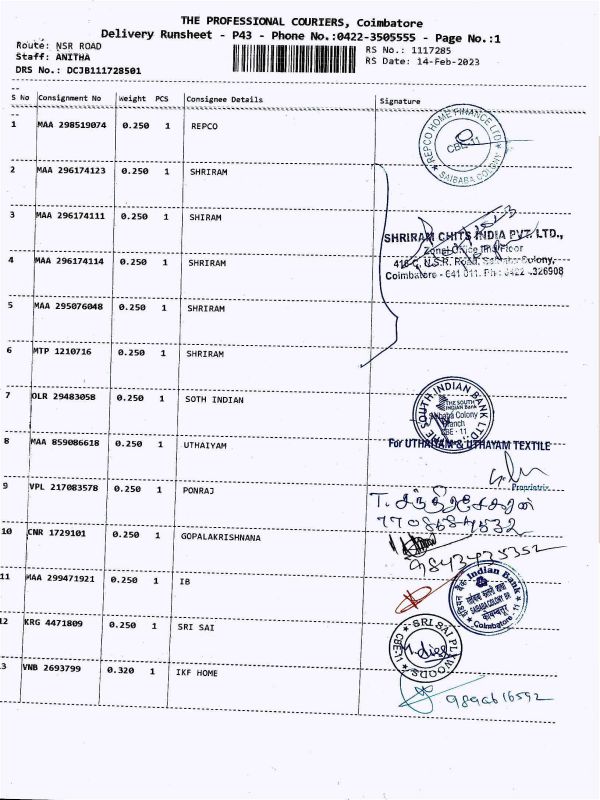 THE PROFESSIONAL COURIERS, Coimbatore
Delivery Runsheet - P43 - Phone No.:0422-3505555 - Page No.:1
Route: NSR ROAD
Staff: ANITHA
DRS No.: DCJB111728501
RS No.: 1117285
RS Date: 14-Feb-2023
S No Consignment No Weight PCS Consignee Details Signature
1 MAA 298519074 0.250 1 REPCO
REPCO HOME FINANCE LTD
CBE-11
SAIBABA COLONY
2 MAA 296174123 0.250 1 SHRIRAM
3 MAA 296174111 0.250 1 SHIRAM
SHRIRAM CHITS INDIA PVT. LTD.,
Zonal Office IInd Floor
416-C, N.S.R. Road, Saibaba Colony,
Coimbatore - 641 011. Ph : 0422 - 326908
4 MAA 296174114 0.250 1 SHRIRAM
5 MAA 295076048 0.250 1 SHRIRAM
6 MTP 1210716 0.250 1 SHRIRAM
7 OLR 29483058 0.250 1 SOTH INDIAN
THE SOUTH INDIAN BANK LTD.
THE SOUTH
INDIAN Bank
Saibaba Colony
Branch
CBE - 11
8 MAA 859086618 0.250 1 UTHAIYAM
For UTHAIYAM & UTHAYAM TEXTILE
Proprietrix
9 VPL 217083578 0.250 1 PONRAJ
T. சந்திரசேகரன்
10 CNR 1729101 0.250 1 GOPALAKRISHNANA
9843435352
11 MAA 299471921 0.250 1 IB
Indian Bank
SAIBABA COLONY BR
Coimbatore - 11
12 KRG 4471809 0.250 1 SRI SAI
SRI SAI PLYWOODS
CBE-11
13 VNB 2693799 0.320 1 IKF HOME
9896616592